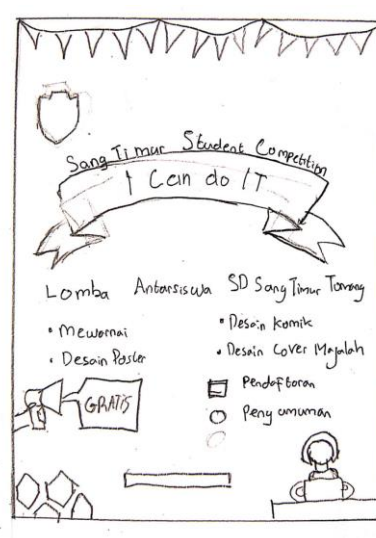 Sang Timur Student Competition
I Can do IT
Lomba Antarsiswa SD Sang Timur Tomang
• Mewarnai
• Desain Poster
• Desain Komik
• Desain Cover Majalah
GRATIS
Pendaftaran
Pengumuman